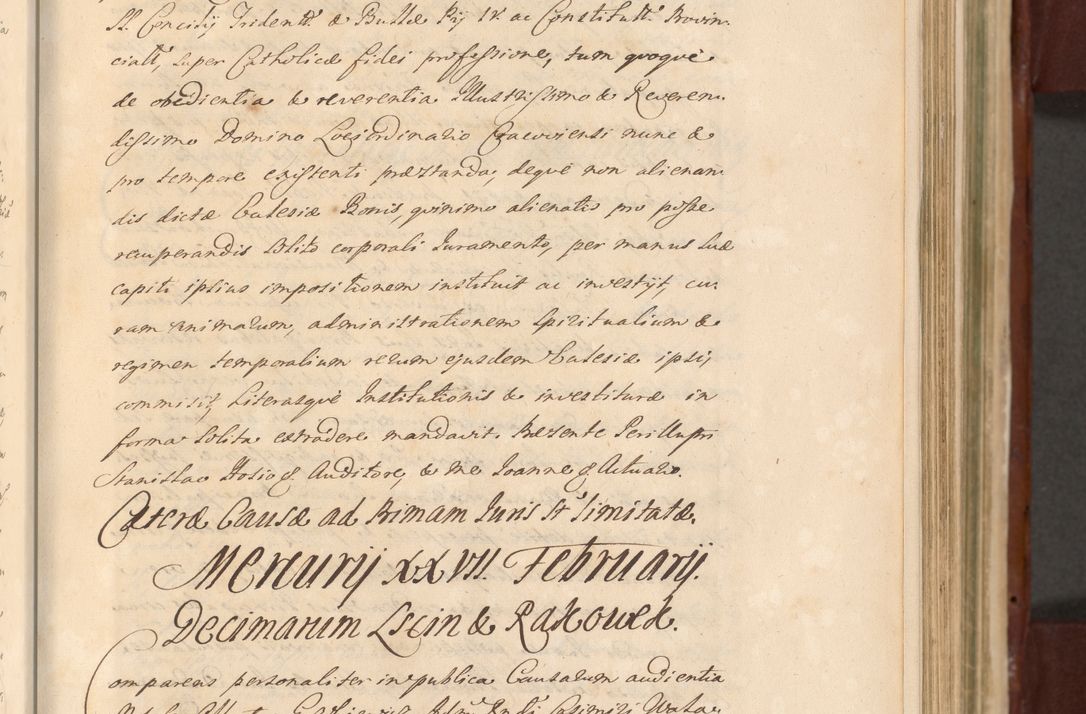 SS. Concilij Tridentt. & Bullæ Pij IV. ac Constitutt. Provin-
ciall, super Catholicæ fidei professione, tum quoque
de obedientia & reverentia Illustrissimo & Reveren-
dissimo Domino Loci ordinario Cracoviensi nunc &
pro tempore existenti præstanda, deque non alienan-
dis dictæ Ecclesiæ Bonis, quinimo alienatis pro posse
recuperandis solito corporali Iuramento, per manus suæ
capiti ipsius impositionem instituit ac investijt, cu-
ram animarum, administrationem spiritualium &
regimen temporalium rerum ejusdem Ecclesiæ ipsi,
commisit, Literasque Institutionis & investituræ in
forma solita extradere mandavit. Præsente Perillustri
Stanislao Hosio q. Auditore, & me Joanne q. Actuario.
Cæteræ Causæ ad Primam Juris
Mercurij XXVII. Februarij.
Decimarum Lscin & Rakowek.
Comparens personaliter in publica Causarum audientia